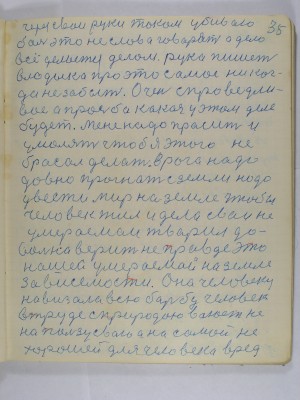 35
через свои руки током убивало
бог это не слова говорят а дело
всё решите делом. рука пишет
владыка про это самое никог-
да незабыт. Очен справедли-
вое а прозба какая у этом деле
будет. Мене надо прасит и
умолят чтоб я этого не
бросал делат. врога надо
довно прогнат с земли надо
увести. мир на земле чтобы
человек жил и дела сваи не
умераемаи тварил до-
волна верит не правде это
нашей умераемай на земле
зависемости. Она человеку
навизала всю барбу человек
в труде с природаю ваюет не
на ползу сваю а на самой не
хорошей для человека вред-